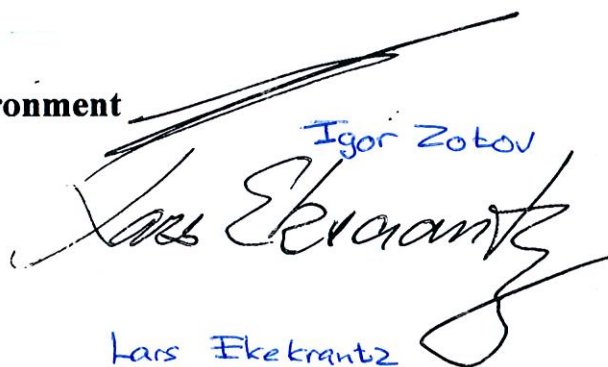 ronment
Igor Zotov
Lars Ekekrantz
Lars Ekekrantz